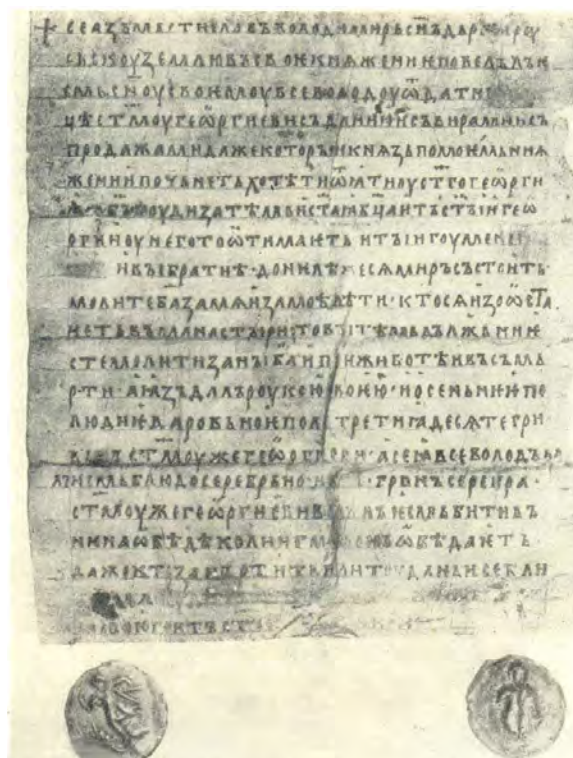 + се азъ мьстиславъ володимирь сн҃ъ дьржа роу
сьскоу землю въ своѥ княжениѥ повелѣлъ ѥ
смь сн҃оу своѥмоу всеволодоу ѿдати
цѣ ст҃моу геѡргиеви съ данию и съ вирами и съ
продажами даже которыи князь по моѥмь кня
жении почьнеть хотѣти ѿяти оу ст҃го геѡрги
ꙗ а бъ҃ боуди за тѣмь и ст҃аꙗ бц҃а и тъ ст҃ыи геѡ
ргии оу него то ѿимаѥть и ты игоумене
и вы братиѣ · донелѣже ся миръ състоить ·
молите ба҃ за мя и за моѣ дѣти · кто ся изѡоста
неть въ манастыри то вы тѣмь дължьни ѥ
сте молити за ны ба҃ и при животѣ и въ съмь
рти · а ꙗзъ далъ роукою своѥю · и осеньнѥѥ по
людиѥ даровьноѥ полътретиꙗдесяте гри
внъ ст҃моу же геѡргиеви · а се ꙗ всеволодъ да
лъ ѥсмь блюдо серебрьно · въ · грвн҃ъ серебра ·
ст҃моу же геѡргиеви велѣлъ ѥсмь бити въ
нѥ на ѡбѣдѣ коли игоуменъ ѡбѣдаѥть
даже кто запъртить или тоу дань и се блю
своѥго и тъ ст҃